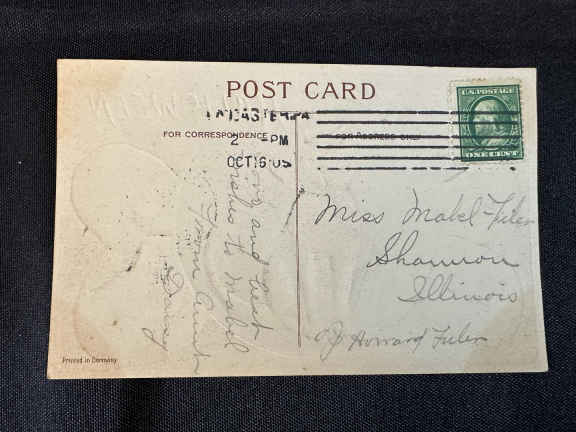 POST CARD
U.S. POSTAGE
ONE CENT
LANCASTER PA
2 - PM
OCT 16 09
FOR CORRESPONDENCE
FOR ADDRESS ONLY
and best
wishes to Mabel
From Aunt
Daisy
Miss Mabel
Shannon
Illinois
Howard
Printed in Germany